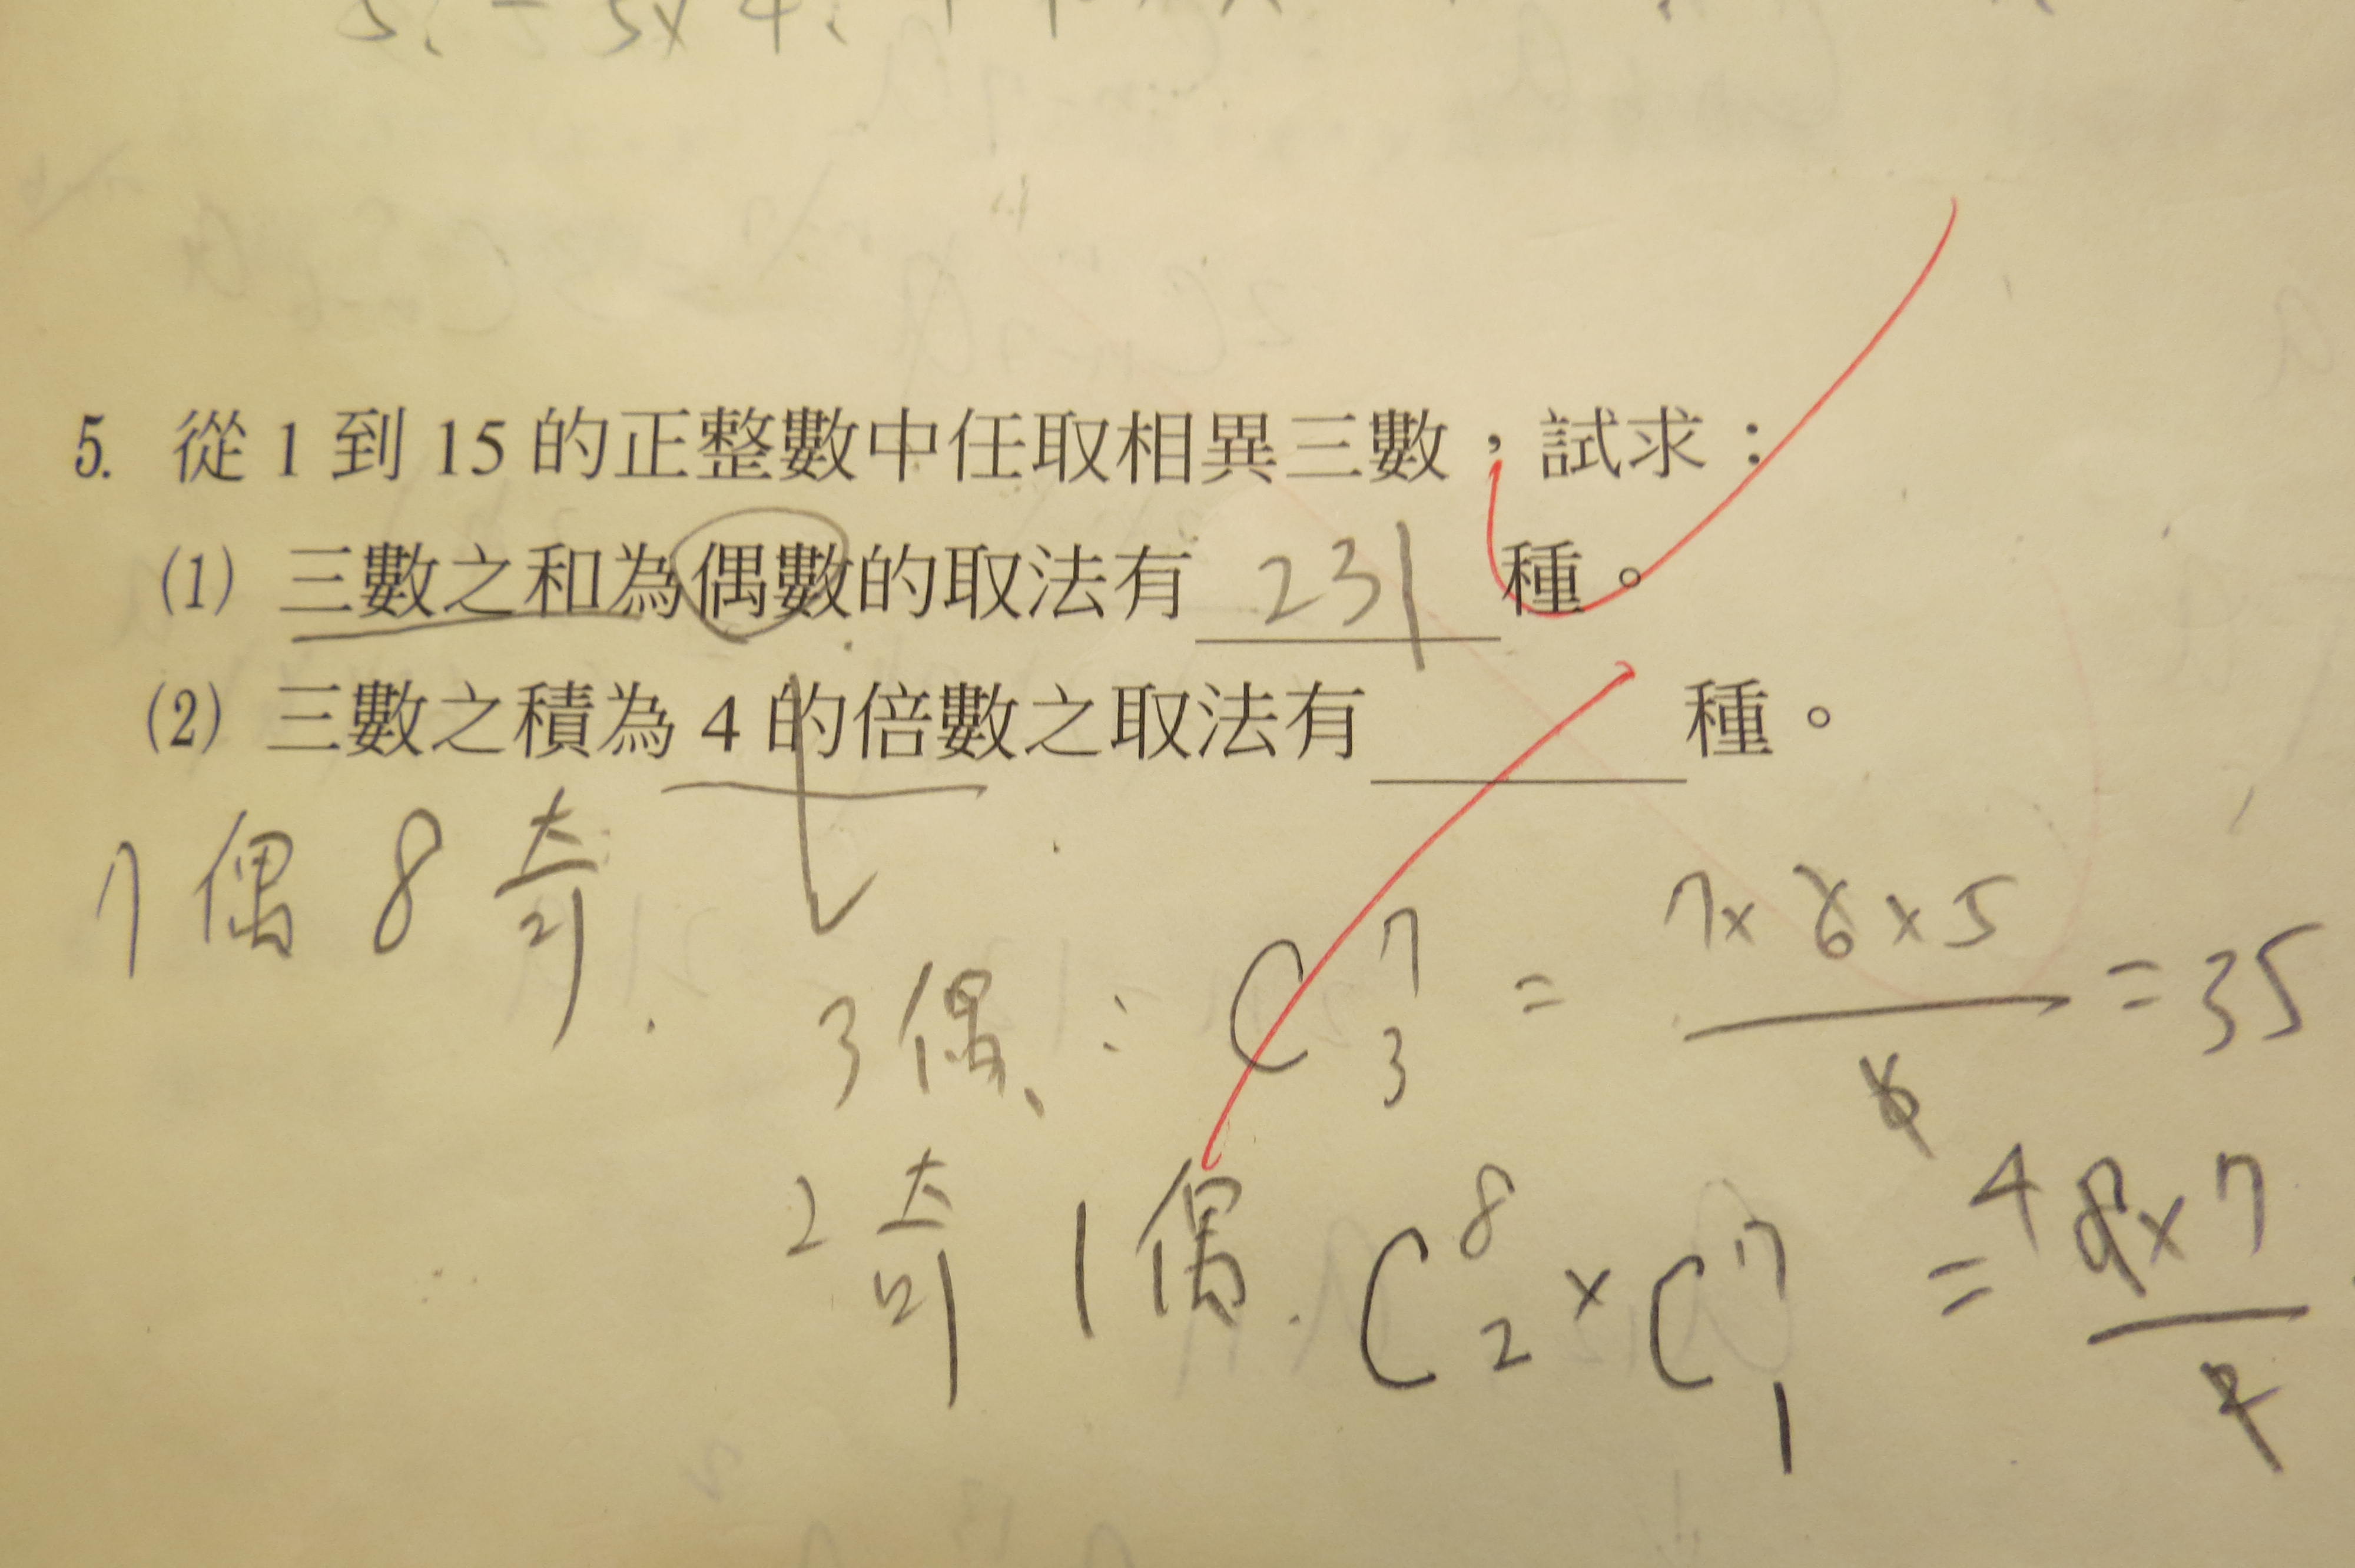 5. 從 1 到 15 的正整數中任取相異三數，試求：
(1) 三數之和為偶數的取法有 231 種。
(2) 三數之積為 4 的倍數之取法有 種。
7 偶 8 奇
3 偶 : C 7 3 = 7 x 6 x 5 / 6 = 35
2 奇 1 偶. C 8 2 x C 7 1 = 4 8 x 7 / 2